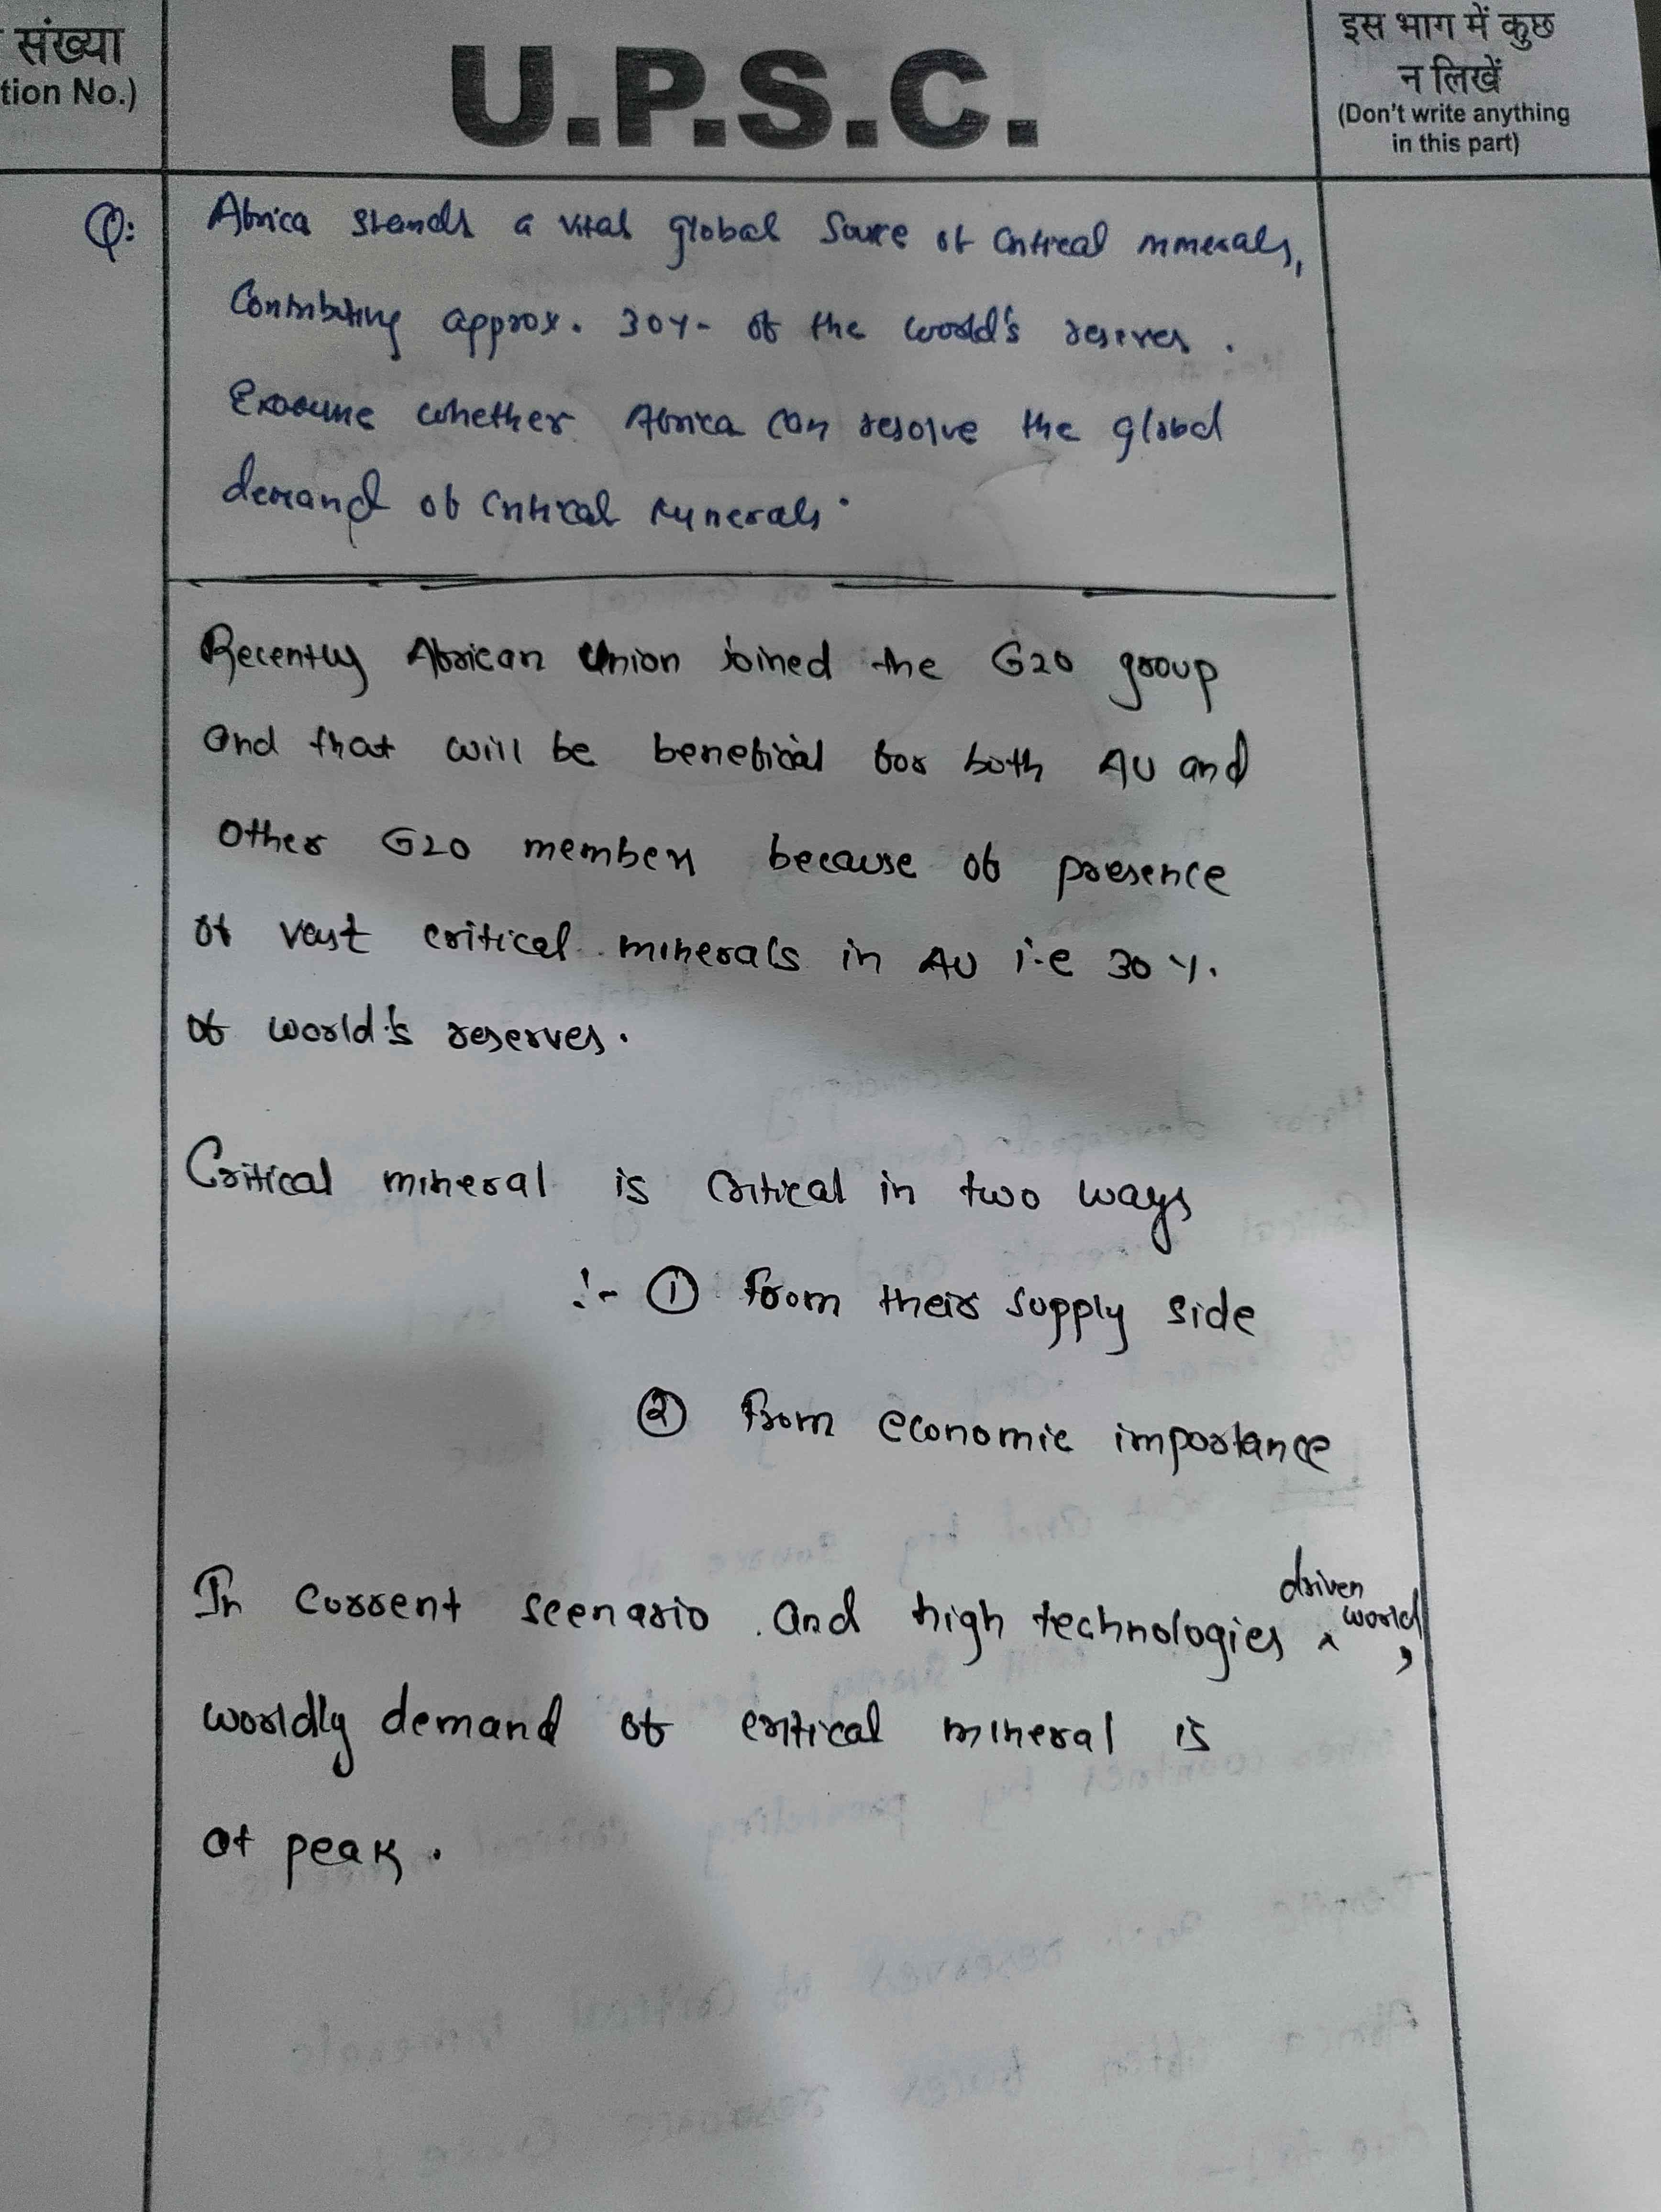 संख्या
tion No.)
U.P.S.C.
इस भाग में कुछ
न लिखें
(Don't write anything
in this part)
Q: Africa stands a vital global source of critical minerals,
Contributing approx. 30% of the world's reserves.
Examine whether Africa can resolve the global
demand of critical minerals.
Recently African Union joined the G20 group
and that will be benefical for both AU and
other G20 members because of presence
of vast critical minerals in AU i.e 30%.
of world's reserves.
Critical mineral is critical in two ways
:- ① from their supply side
② from economic importance
In current scenario and high technologies driven world,
worldly demand of critical mineral is
at peak.